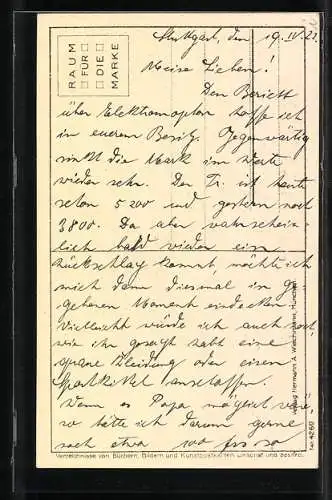 RAUM
FÜR
DIE
MARKE
Stuttgart, den 19. IV. 23.
Meine Lieben!
Den Bericht
über Elektromopton hoffe ich
in eurem Besitz. Gegenwärtig
sinkt die Mark im Werte
wieder sehr. Der Fr. ist heute
schon 5200 und gestern noch
3800. Da aber wahrschein-
lich bald wieder ein
Rückschlag kommt, möchte ich
mich dann diesmal im ge-
gebenen Moment eindecken.
Vielleicht würde ich auch
wie ihr gesagt habt eine
Kleidung oder einen
anschaffen.
Wenn es Papa möglich wäre,
so hätte ich darum gerne
noch etwa 100 frs so
Verlag Hermann A. Wiechmann, München
Nr. 4260
Verzeichnisse von Büchern, Bildern und Kunstpostkarten umsonst und postfrei.